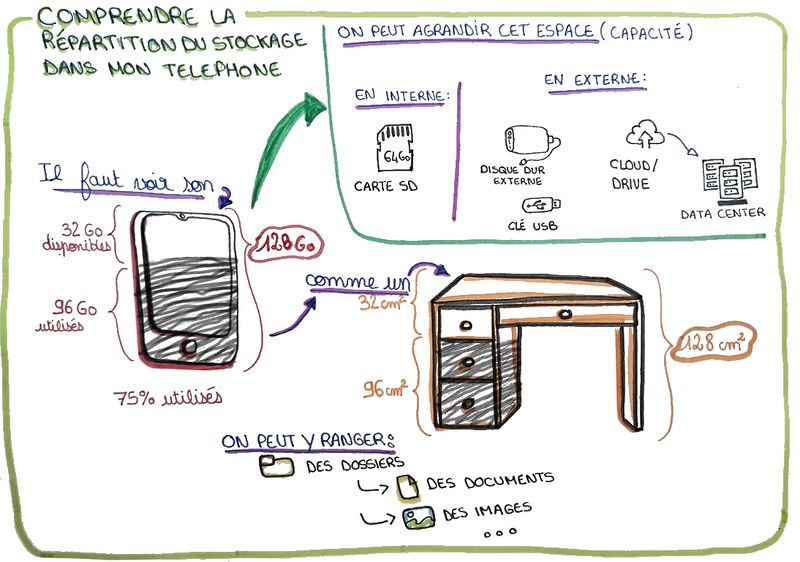 COMPRENDRE LA
RÉPARTITION DU STOCKAGE
DANS MON TELEPHONE
ON PEUT AGRANDIR CET ESPACE (CAPACITÉ)
EN INTERNE:
EN EXTERNE:
64Go
CARTE SD
DISQUE DUR
EXTERNE
CLÉ USB
CLOUD/
DRIVE
DATA CENTER
Il faut voir son
32 Go
disponibles
96 Go
utilisés
128 Go
75% utilisés
comme un
32 cm²
96 cm²
128 cm²
ON PEUT Y RANGER:
DES DOSSIERS
DES DOCUMENTS
DES IMAGES
...